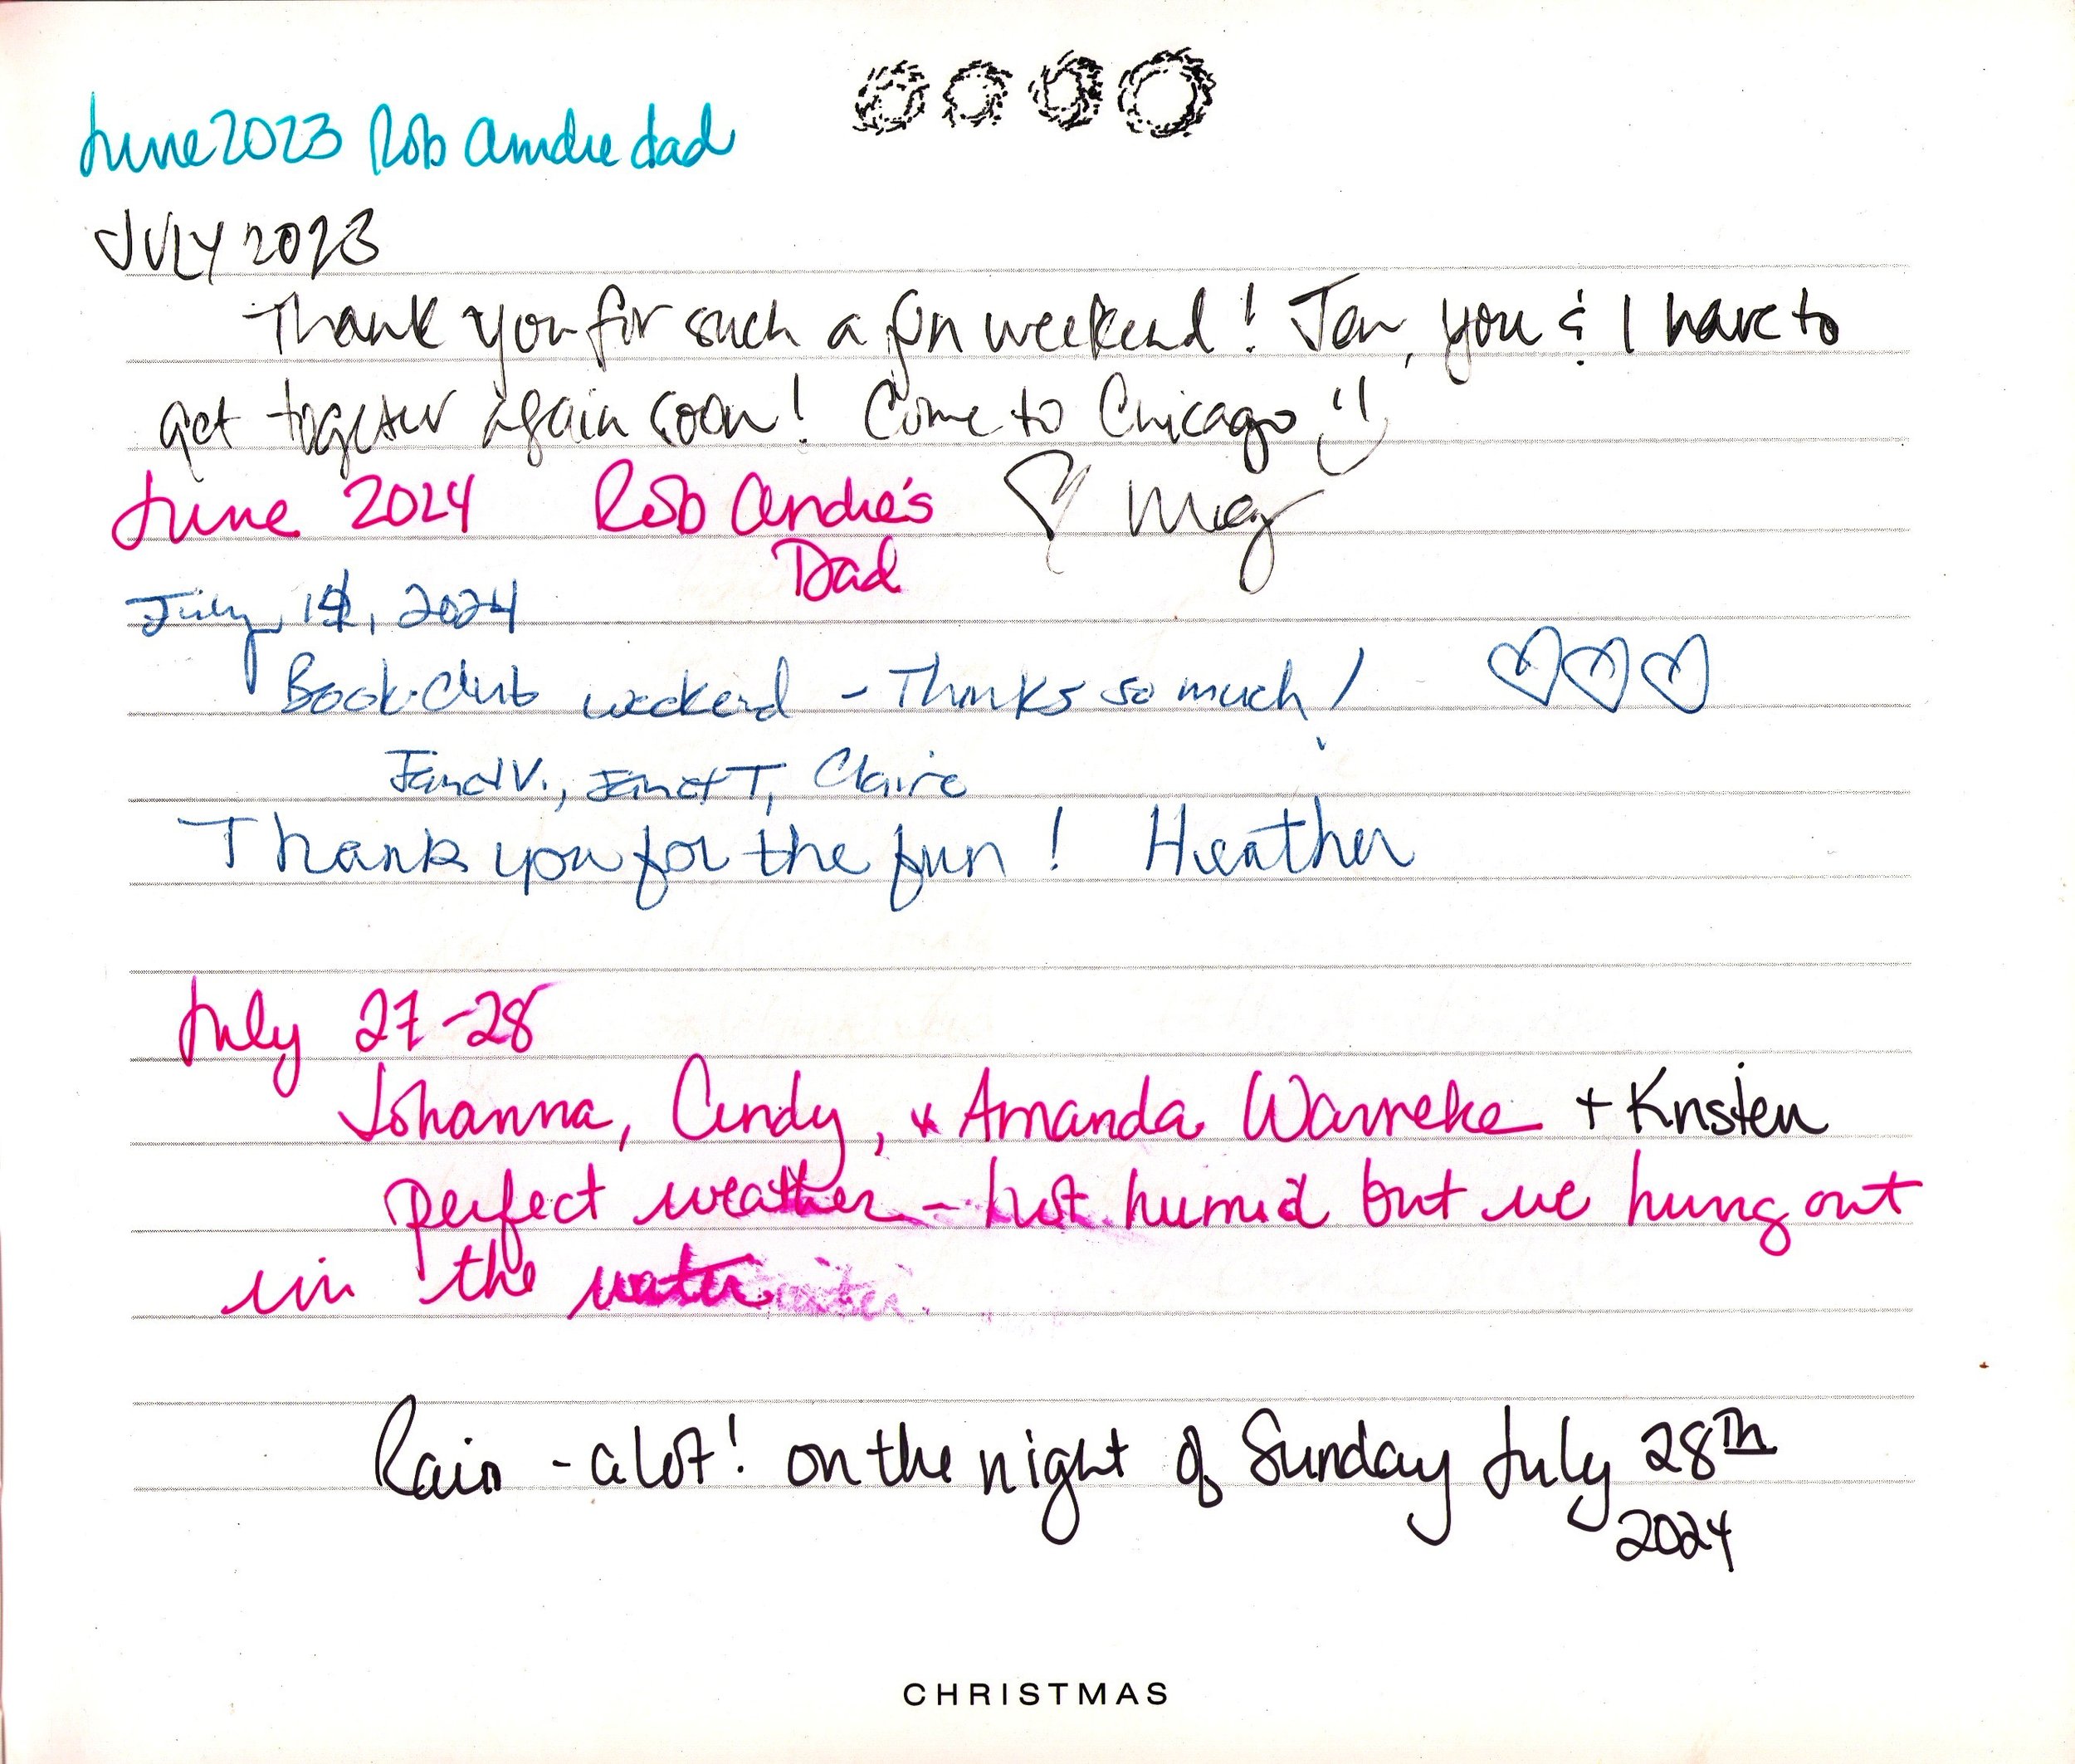 June 2023 Rob Andre dad
JULY 2023
Thank you for such a fun weekend! Jen, you & I have to
get together again soon! Come to Chicago :)
June 2024 Rob Andre's ♡ Meg
Dad
July, 2024
Book Club weekend - Thanks so much! ♡♡♡
Janet V., Janet T, Claire
Thank you for the fun! Heather
July 27-28
Johanna, Cindy, + Amanda Warneke + Kristen
perfect weather - hot humid but we hung out
in the water
Rain - a lot! on the night of Sunday July 28th
2024
CHRISTMAS